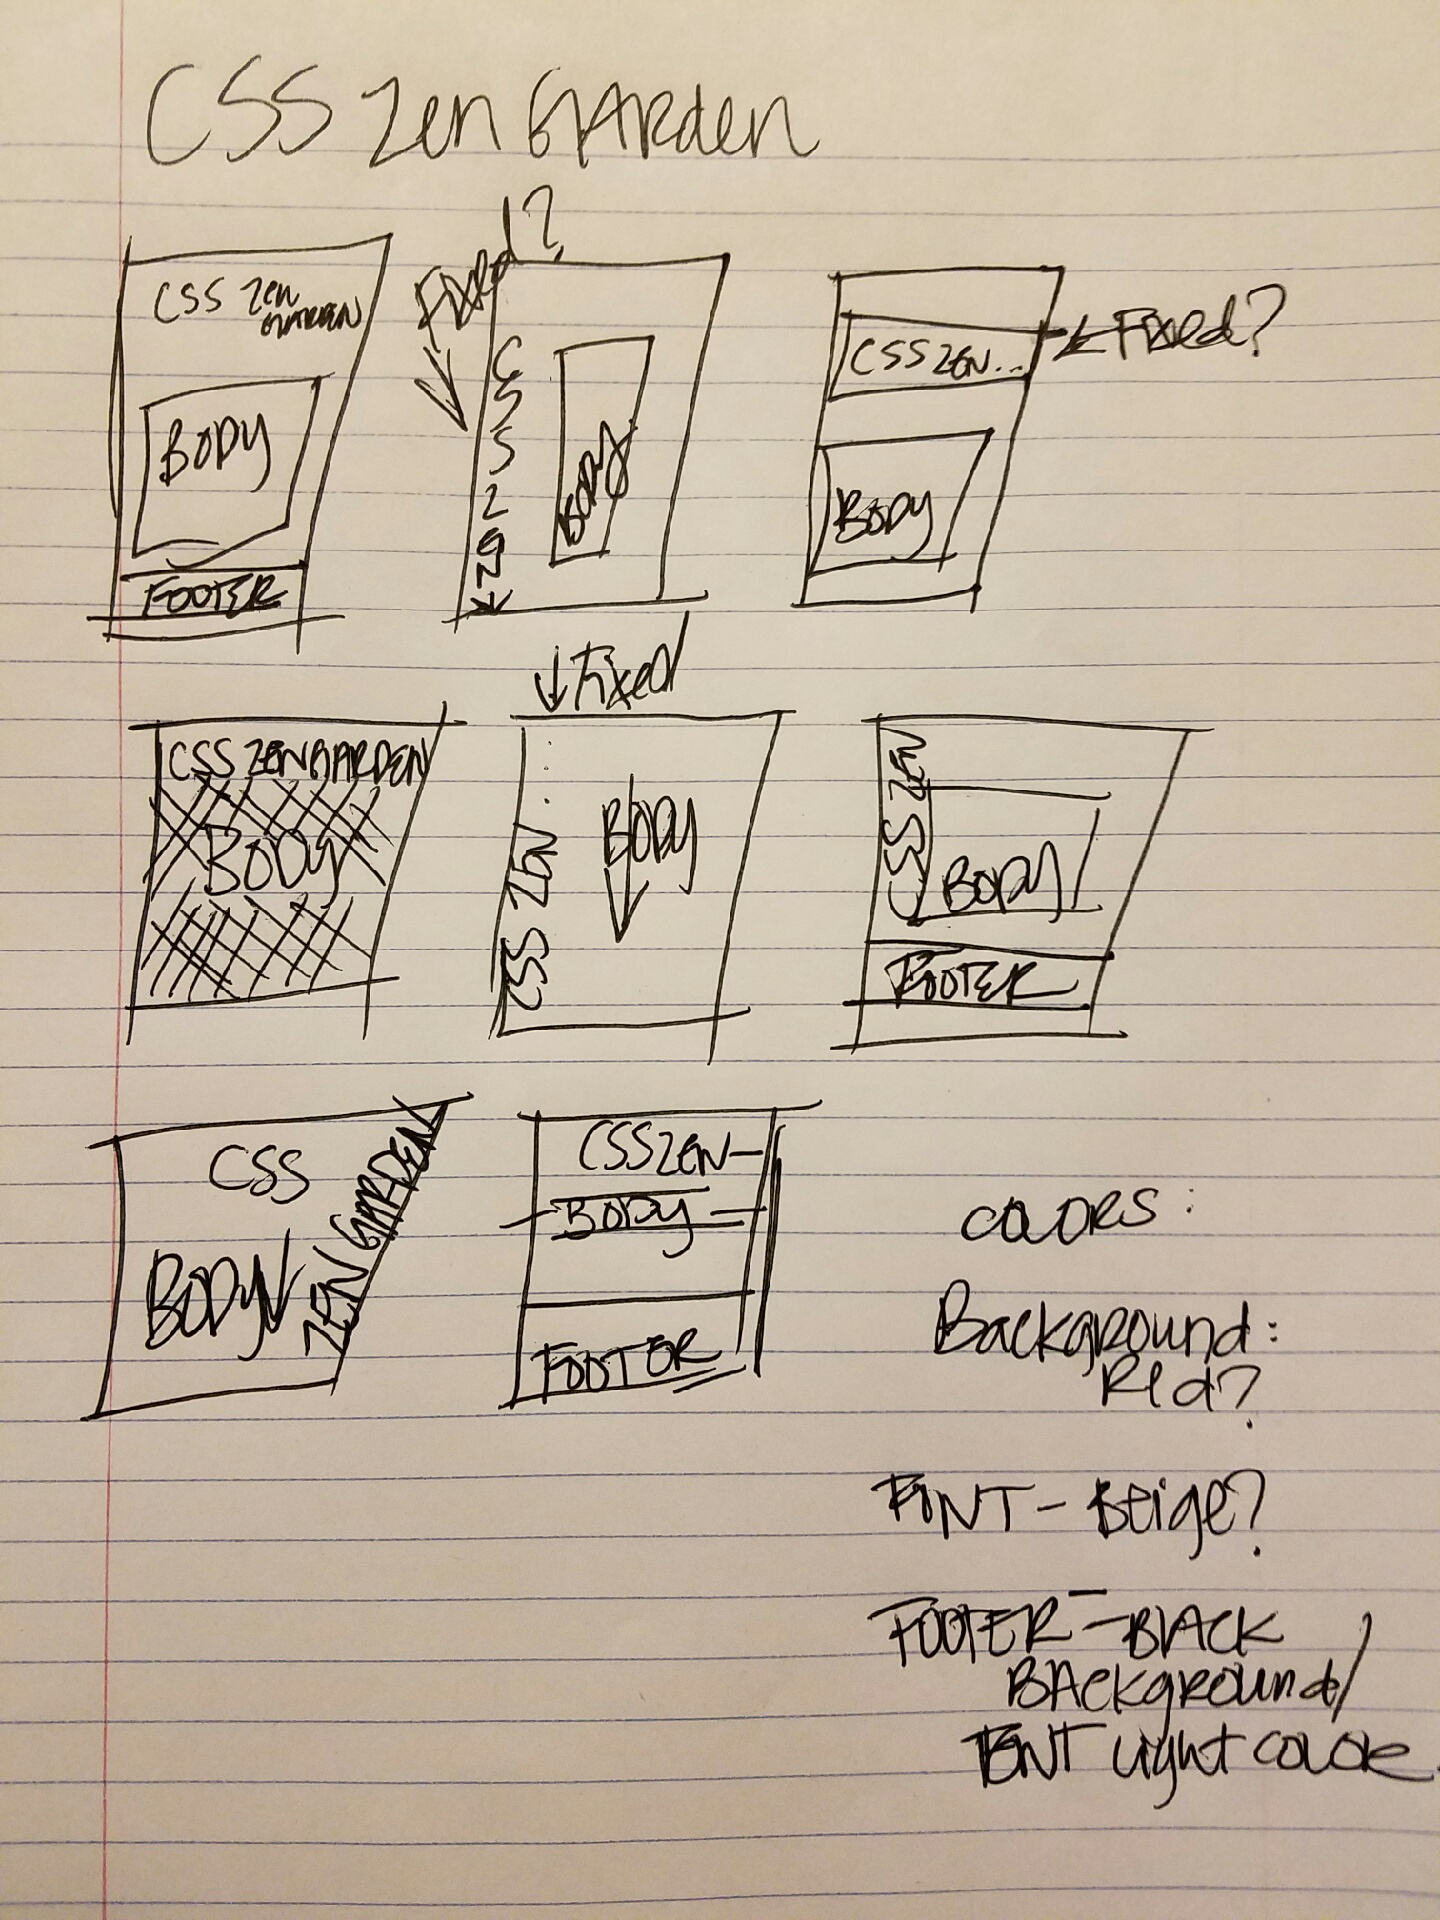 CSS Zen GARden
CSS Zen
GARDEN
BODY
FOOTER
Fixed?
CSS
BODY
Fixed?
CSS ZEN...
BODY
CSS ZENGARDEN
BODY
Fixed
CSS ZEN...
BODY
CSS ZEN
BODY
FOOTER
CSS
ZEN GARDEN
BODY
CSS ZEN
BODY
FOOTER
COLORS:
Background:
Red?
FONT - Beige?
FOOTER - BLACK
BACKground/
FONT Light COLOR.